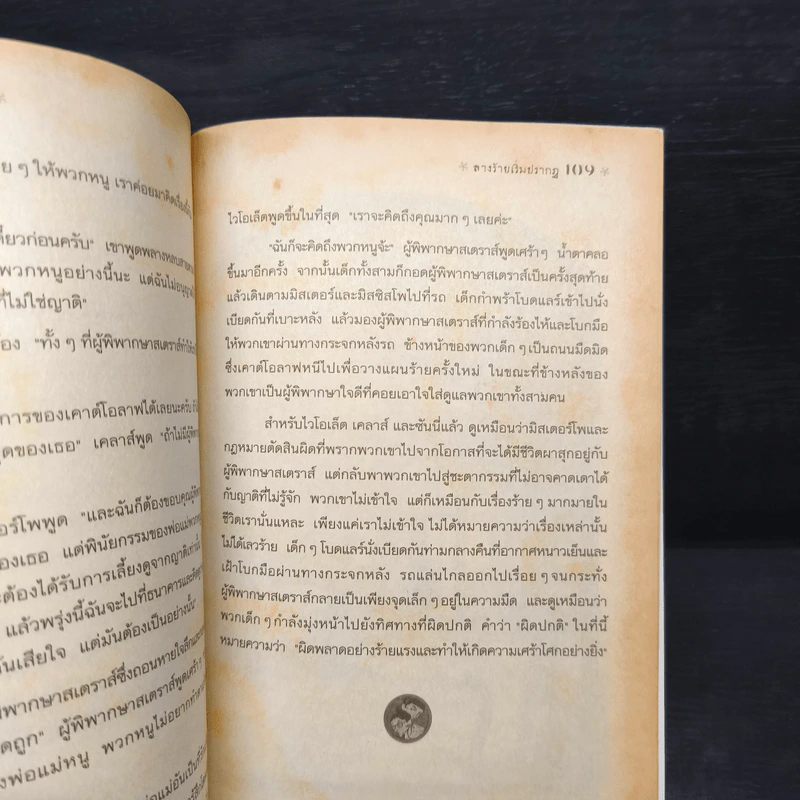 ย ๆ ให้พวกหนู เราค่อยมาคิดเรื่องนี้
ดี๋ยวก่อนครับ" เขาพูดพลางหลบสายตา
พวกหนูอย่างนี้นะ แต่ฉันไม่อนุญาต
ที่ไม่ใช่ญาติ"
อง "ทั้ง ๆ ที่ผู้พิพากษาสเตราส์ทำให้
การของเคาต์โอลาฟได้เลยนะครับ ถ้า
พูดของเธอ" เคลาส์พูด "ถ้าไม่มีผู้พิพา
อร์โพพูด "และฉันก็ต้องขอบคุณผู้พิพ
องเธอ แต่พินัยกรรมของพ่อแม่พวกหนู
ะต้องได้รับการเลี้ยงดูจากญาติเท่านั้น
แล้วพรุ่งนี้ฉันจะไปที่ธนาคารและคิดดู
ันเสียใจ แต่มันต้องเป็นอย่างนั้น"
พิพากษาสเตราส์ซึ่งถอนหายใจลึกและ
ดถูก" ผู้พิพากษาสเตราส์พูดเศร้า ๆ
งพ่อแม่หนู พวกหนูไม่อยากทำตาม
พ่อแม่อันเป็นที่รัก
ลางร้ายเริ่มปรากฏ 109
ไวโอเล็ตพูดขึ้นในที่สุด "เราจะคิดถึงคุณมาก ๆ เลยค่ะ"
"ฉันก็จะคิดถึงพวกหนูจ้ะ" ผู้พิพากษาสเตราส์พูดเศร้าๆ น้ำตาคลอ
ขึ้นมาอีกครั้ง จากนั้นเด็กทั้งสามก็กอดผู้พิพากษาสเตราส์เป็นครั้งสุดท้าย
แล้วเดินตามมิสเตอร์และมิสซิสโพไปที่รถ เด็กกำพร้าโบดแลร์เข้าไปนั่ง
เบียดกันที่เบาะหลัง แล้วมองผู้พิพากษาสเตราส์ที่กำลังร้องไห้และโบกมือ
ให้พวกเขาผ่านทางกระจกหลังรถ ข้างหน้าของพวกเด็ก ๆ เป็นถนนมืดมิด
ซึ่งเคาต์โอลาฟหนีไปเพื่อวางแผนร้ายครั้งใหม่ ในขณะที่ข้างหลังของ
พวกเขาเป็นผู้พิพากษาใจดีที่คอยเอาใจใส่ดูแลพวกเขาทั้งสามคน
สำหรับไวโอเล็ต เคลาส์ และซันนี่แล้ว ดูเหมือนว่ามิสเตอร์โพและ
กฎหมายตัดสินผิดที่พรากพวกเขาไปจากโอกาสที่จะได้มีชีวิตผาสุกอยู่กับ
ผู้พิพากษาสเตราส์ แต่กลับพาพวกเขาไปสู่ชะตากรรมที่ไม่อาจคาดเดาได้
กับญาติที่ไม่รู้จัก พวกเขาไม่เข้าใจ แต่ก็เหมือนกับเรื่องร้าย ๆ มากมายใน
ชีวิตเรานั่นแหละ เพียงแค่เราไม่เข้าใจ ไม่ได้หมายความว่าเรื่องเหล่านั้น
ไม่ได้เลวร้าย เด็ก ๆ โบดแลร์นั่งเบียดกันท่ามกลางคืนที่อากาศหนาวเย็นและ
เฝ้าโบกมือผ่านทางกระจกหลัง รถแล่นไกลออกไปเรื่อย ๆ จนกระทั่ง
ผู้พิพากษาสเตราส์กลายเป็นเพียงจุดเล็ก ๆ อยู่ในความมืด และดูเหมือนว่า
พวกเด็ก ๆ กำลังมุ่งหน้าไปยังทิศทางที่ผิดปกติ คำว่า "ผิดปกติ" ในที่นี้
หมายความว่า "ผิดพลาดอย่างร้ายแรงและทำให้เกิดความเศร้าโศกอย่างยิ่ง"